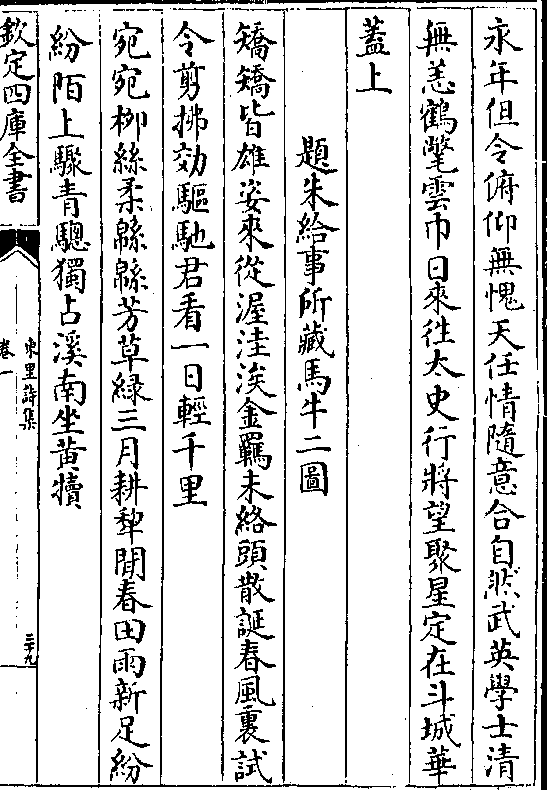 永年但令俯仰無愧天任情隨意合自然武英學士清
無恙鶴氅雲巾日來徃太史行將望聚星定在斗城華
蓋上
題朱給事所藏馬牛二圖
矯矯皆雄姿來從渥洼涘金羈未絡頭散誕春風裏試
令剪拂効驅馳君看一日輕千里
宛宛栁絲柔緜緜芳草緑三月耕犂閒春田雨新足紛
紛陌上驟青驄獨占溪南坐黄犢
欽定四庫全書
東里詩集
卷一
二十九